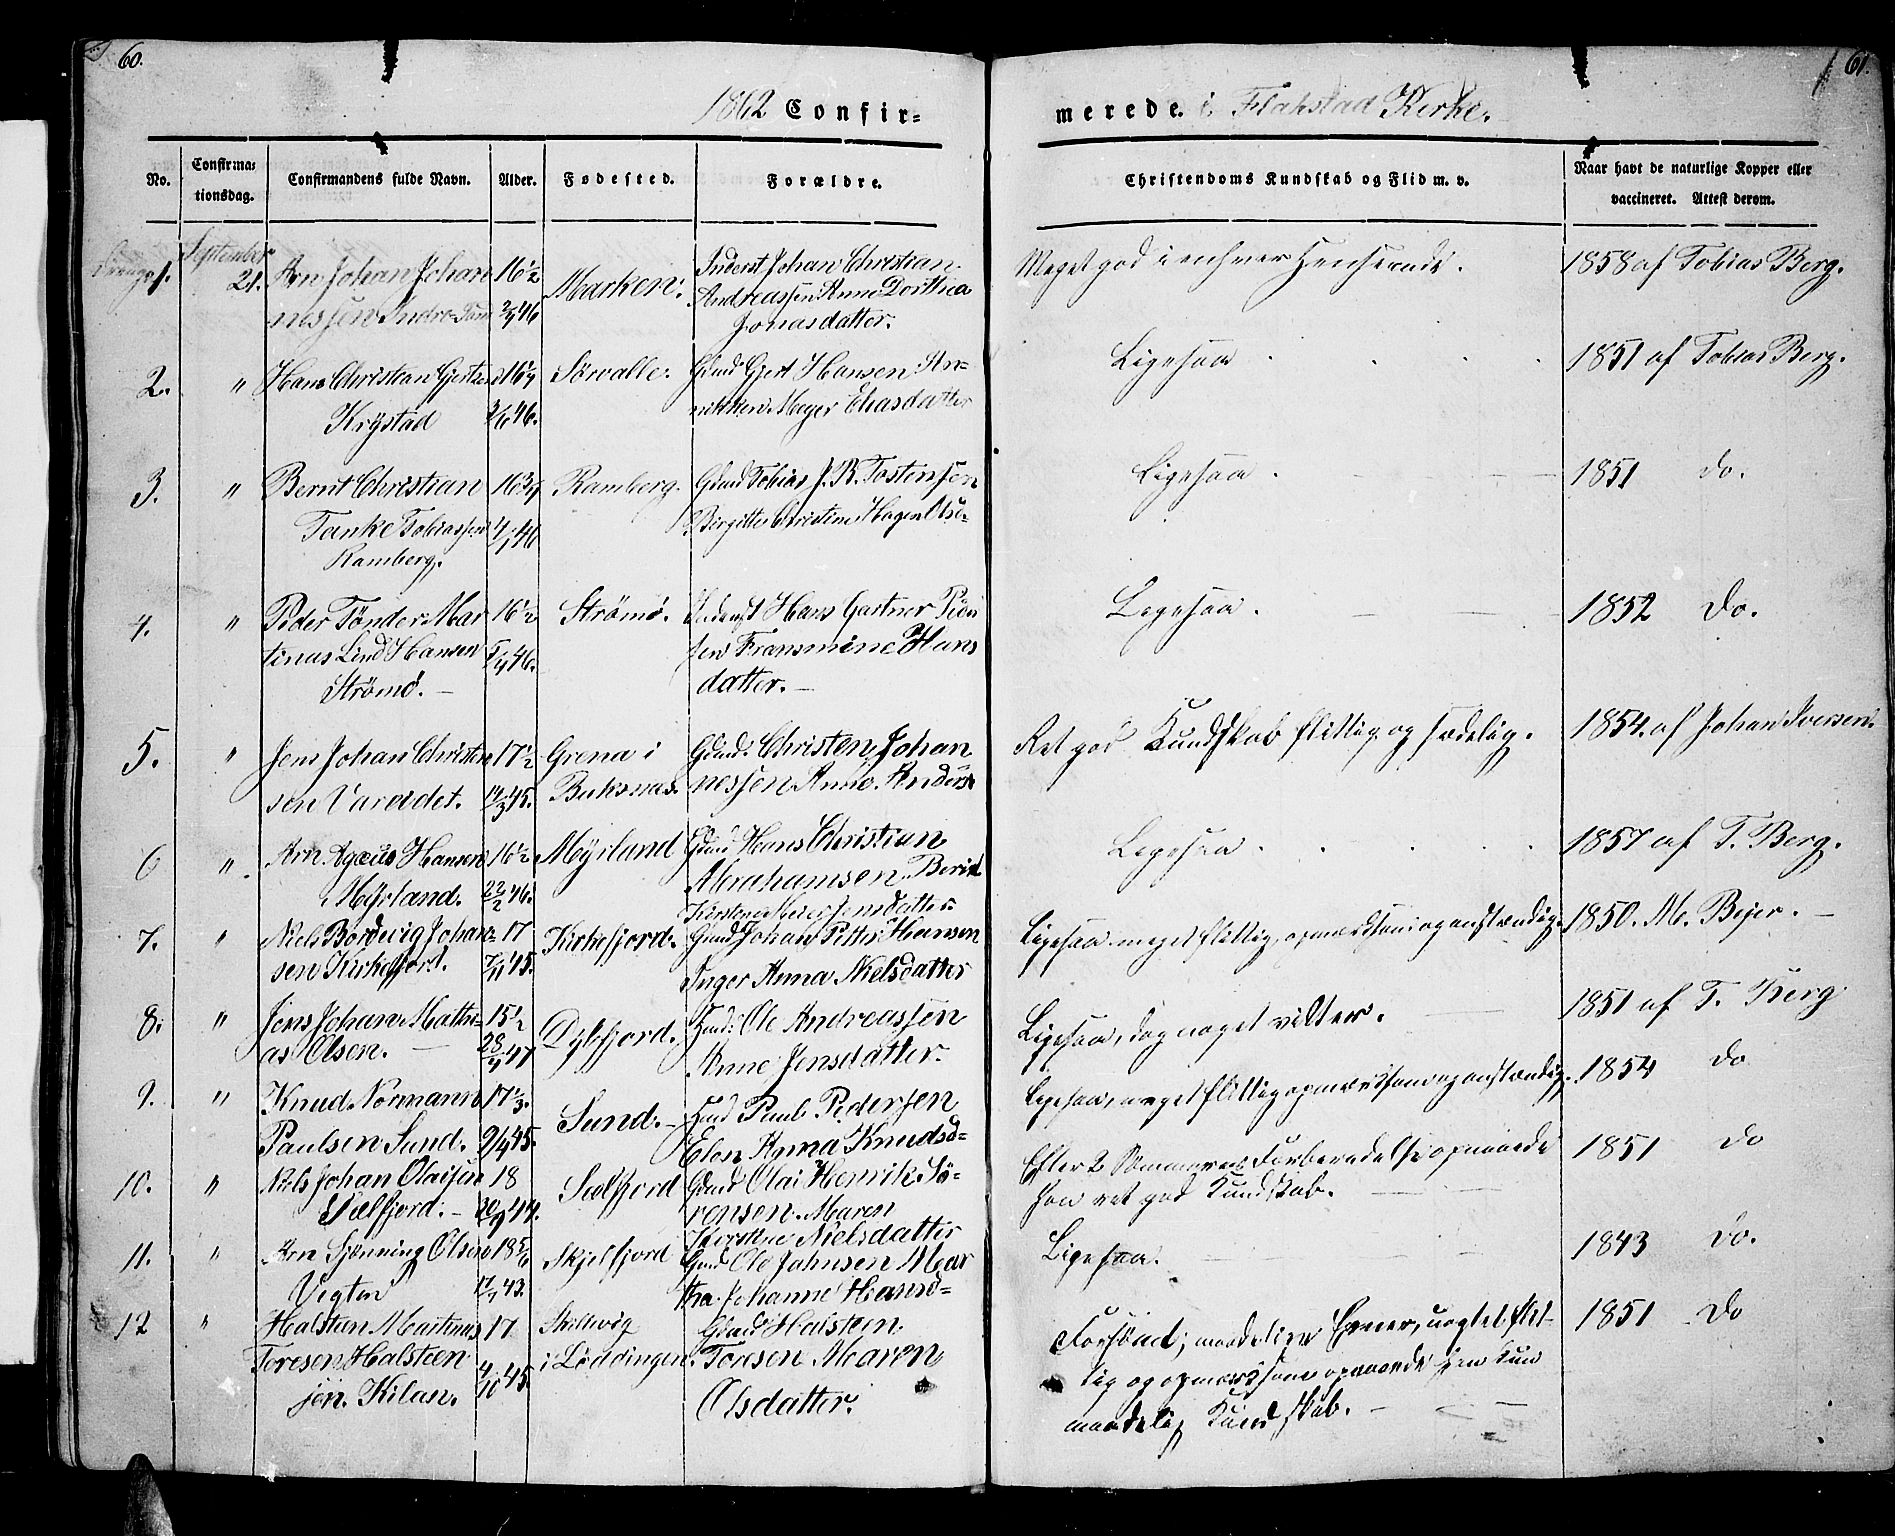 60.
61.
1862 Confir=
merede. i Flakstad Kirke.
No.
Confirma=
tionsdag.
Confirmandens fulde Navn.
Alder.
Fødested.
Forældre.
Christendoms Kundskab og Flid m. v.
Naar havt de naturlige Kopper eller
vaccineret. Attest derom.
1.
September
21.
Arn Johan Johan
nessen Indre
16 1/2
46
Marken.
Inderst Johan Christian
Andreassen Anne Dorthea
Jonasdatter.
Meget god i enhver Henseende.
1858 af Tobias Berg.
2.
"
Hans Christian Gjertsen
Krystad
16 1/4
46.
Sørvalle.
Gmd Gjert Hansen An=
nikken Meyer Eliasdatter
Ligesaa
1851 af Tobias Berg.
3.
"
Bernt Christian
Tanke Tobiassen
Ramberg.
16 3/4
46
Ramberg.
Gmd Tobias J. B. Tostensen
Birgitte Christine Hagen
Ligesaa.
1851 do.
4.
"
Peder Tønder Mar
tinus Lind Hansen
Strømø. —
16 1/2
46.
Strømø.
Inderst Hans Gartner Peder
sen Fransmine Hans
datter. —
Ligesaa.
1852 do.
5.
"
Jens Johan Christen
sen Vareidet.
17 1/2
14/3 45.
Grena i
Buksnæs.
Gmd: Christen Johan
nessen Anne Anders
Ret god Kundskab flittig og sædelig.
1854. af Johan Iversen.
6
"
Arn Agæus Hansen
Myrland.
16 1/2
22/2 46.
Myrland
Gmd Hans Christian
Abrahamsen Berit
Kirstine Meier Jensdatter.
Ligesaa
1857 af T. Berg.
7.
"
Niels Bordevig Johan
sen Kirkefjord.
17
7/11 45.
Kirkefjord.
Gmd Johan Petter Hansen
Inger Anna Nielsdatter
Ligesaa meget flittig, opmærksom og anstændig.
1850. M. Bejer. —
8.
"
Jens Johan Mathi=
as Olsen. —
15 1/2
47
Dybfjord.
Hmd: Ole Andreassen
Anne Jensdatter.
Ligesaa, dog noget vilter.
1851 af T. Berg
9.
"
Knud Normann
Paulsen Sund.
17 1/3.
45.
Sund. —
Hmd Paul Pedersen
Elen Anna Knudsd=
Ligesaa, meget flittig opmærksom og anstændig.
1854 do
10.
"
Niels Johan Olaisen
Sælfjord. —
18
44.
Sælfjord
Gmd Olai Henrik Sø=
rensen. Maren
Kirstine Nielsdatter
Efter 2 Sommeres Forberedelse opnaaede
han ret god Kundskab.
1851 do
11.
"
Arn Sjenning Olsen
Vigten
18 5/6
43.
Skjelfjord
Gmd Ole Jahnsen Mar
tha Johanne Hansd=
Ligesaa.
1843 do.
12
"
Halsteen Martinus
Toresen Halsteen
sen. Kilan.
17
4/10 45.
i Lødingen.
Gmd Halsteen
Toresen Maren
Olsdatter.
Forsømt; maadelige Evner, uagtet flit=
tig og opmærksom opnaaede han kun
maadelig Kundskab. —
1851 do